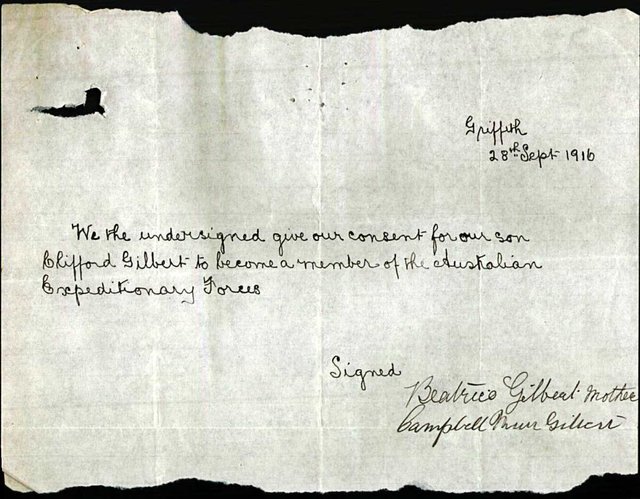 Griffith
28th Sept 1916
We the undersigned give our consent for our son
Clifford Gilbert to become a member of the Australian
Expeditionary Forces
Signed
Beatrice Gilbert Mother
Campbell Muir Gilbert